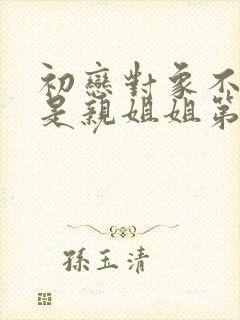 初戀對象不
是親姐姐第
孫玉清